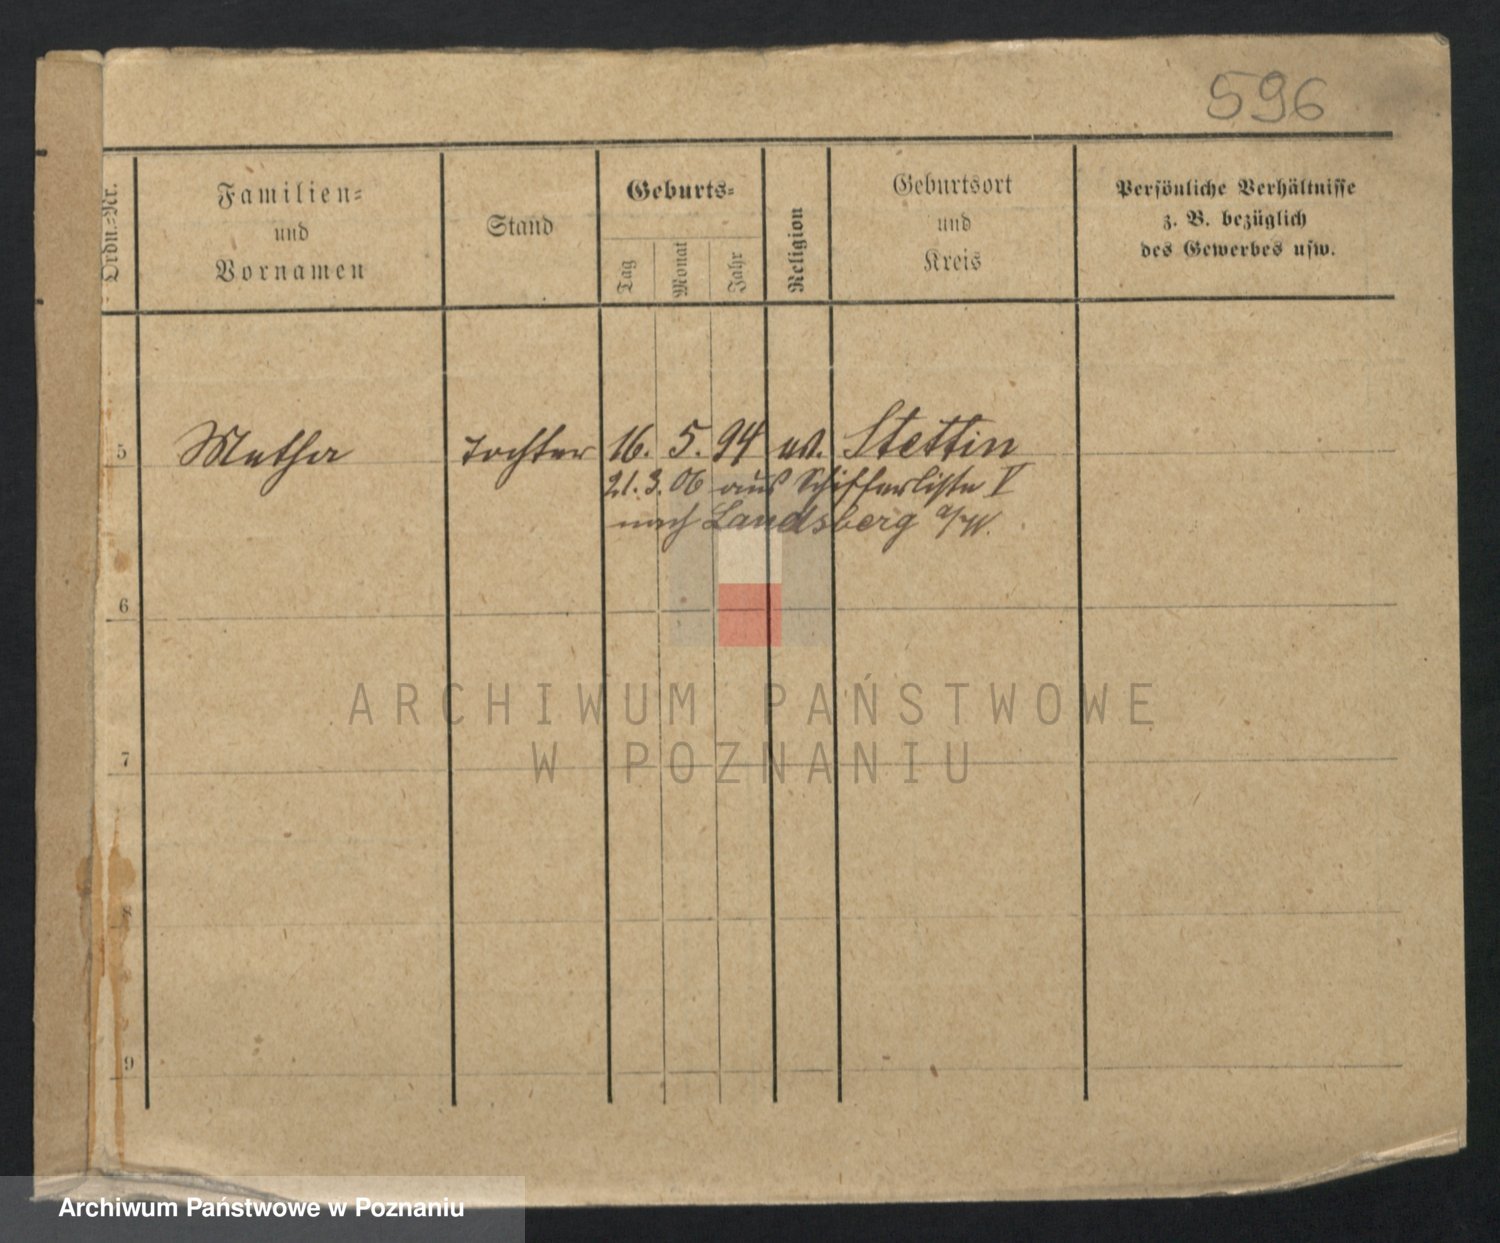 596
Ordn.-Nr.
Familien-
und
Vornamen
Stand
Geburts-
Tag
Monat
Jahr
Religion
Geburtsort
und
Kreis
Persönliche Verhältnisse
z. B. bezüglich
des Gewerbes usw.
5 Metha Tochter 16. 5. 94 ev. Stettin
21. 3. 06 aus Schifferliste V
nach Landsberg a/W.
6
ARCHIWUM PAŃSTWOWE
W POZNANIU
7
8
9
Archiwum Państwowe w Poznaniu